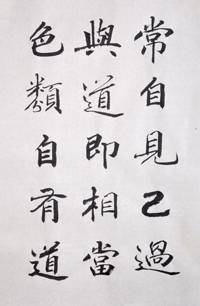 常自見己過
與道即相當
色類自有道